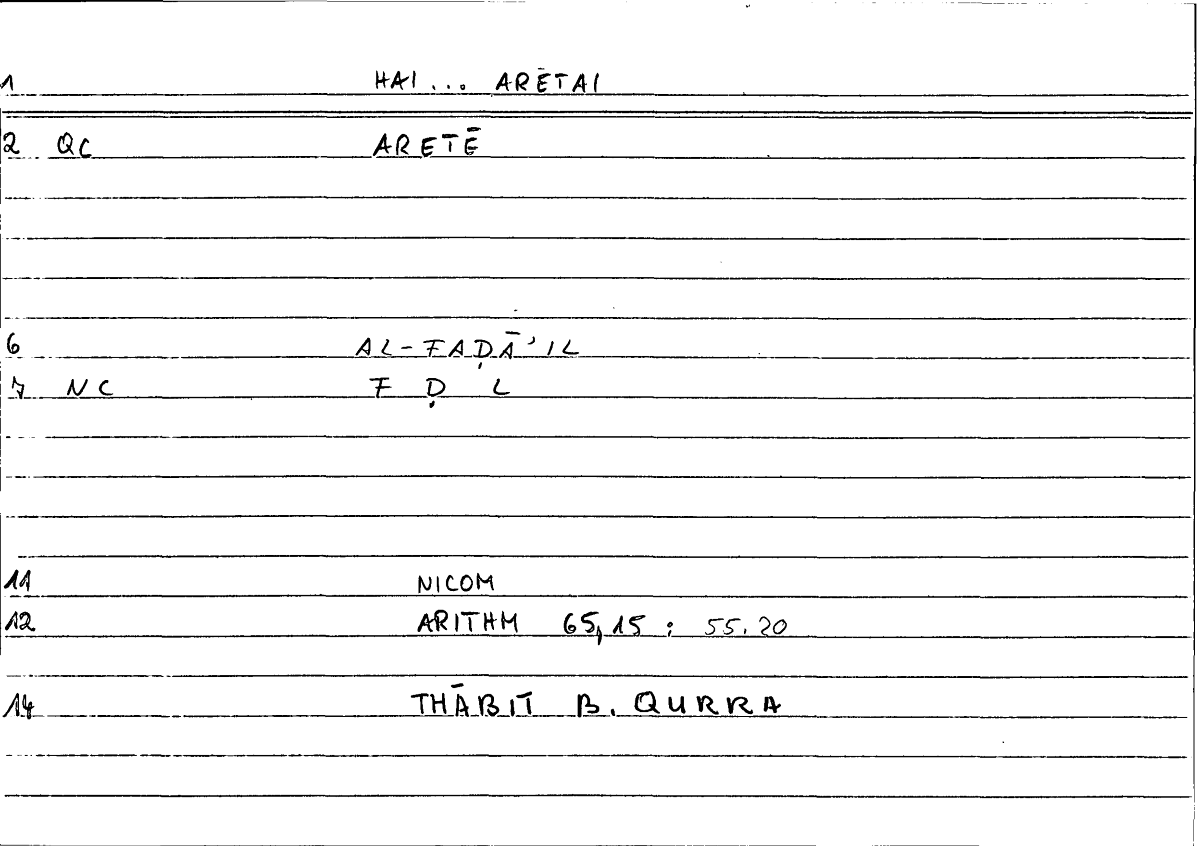 1 HAI ... ARĒTAI
2 QC ARETĒ
6 AL-FAḌĀ'IL
7 NC F Ḍ L
11 NICOM
12 ARITHM 65,15 : 55.20
14 THĀBIT B. QURRA